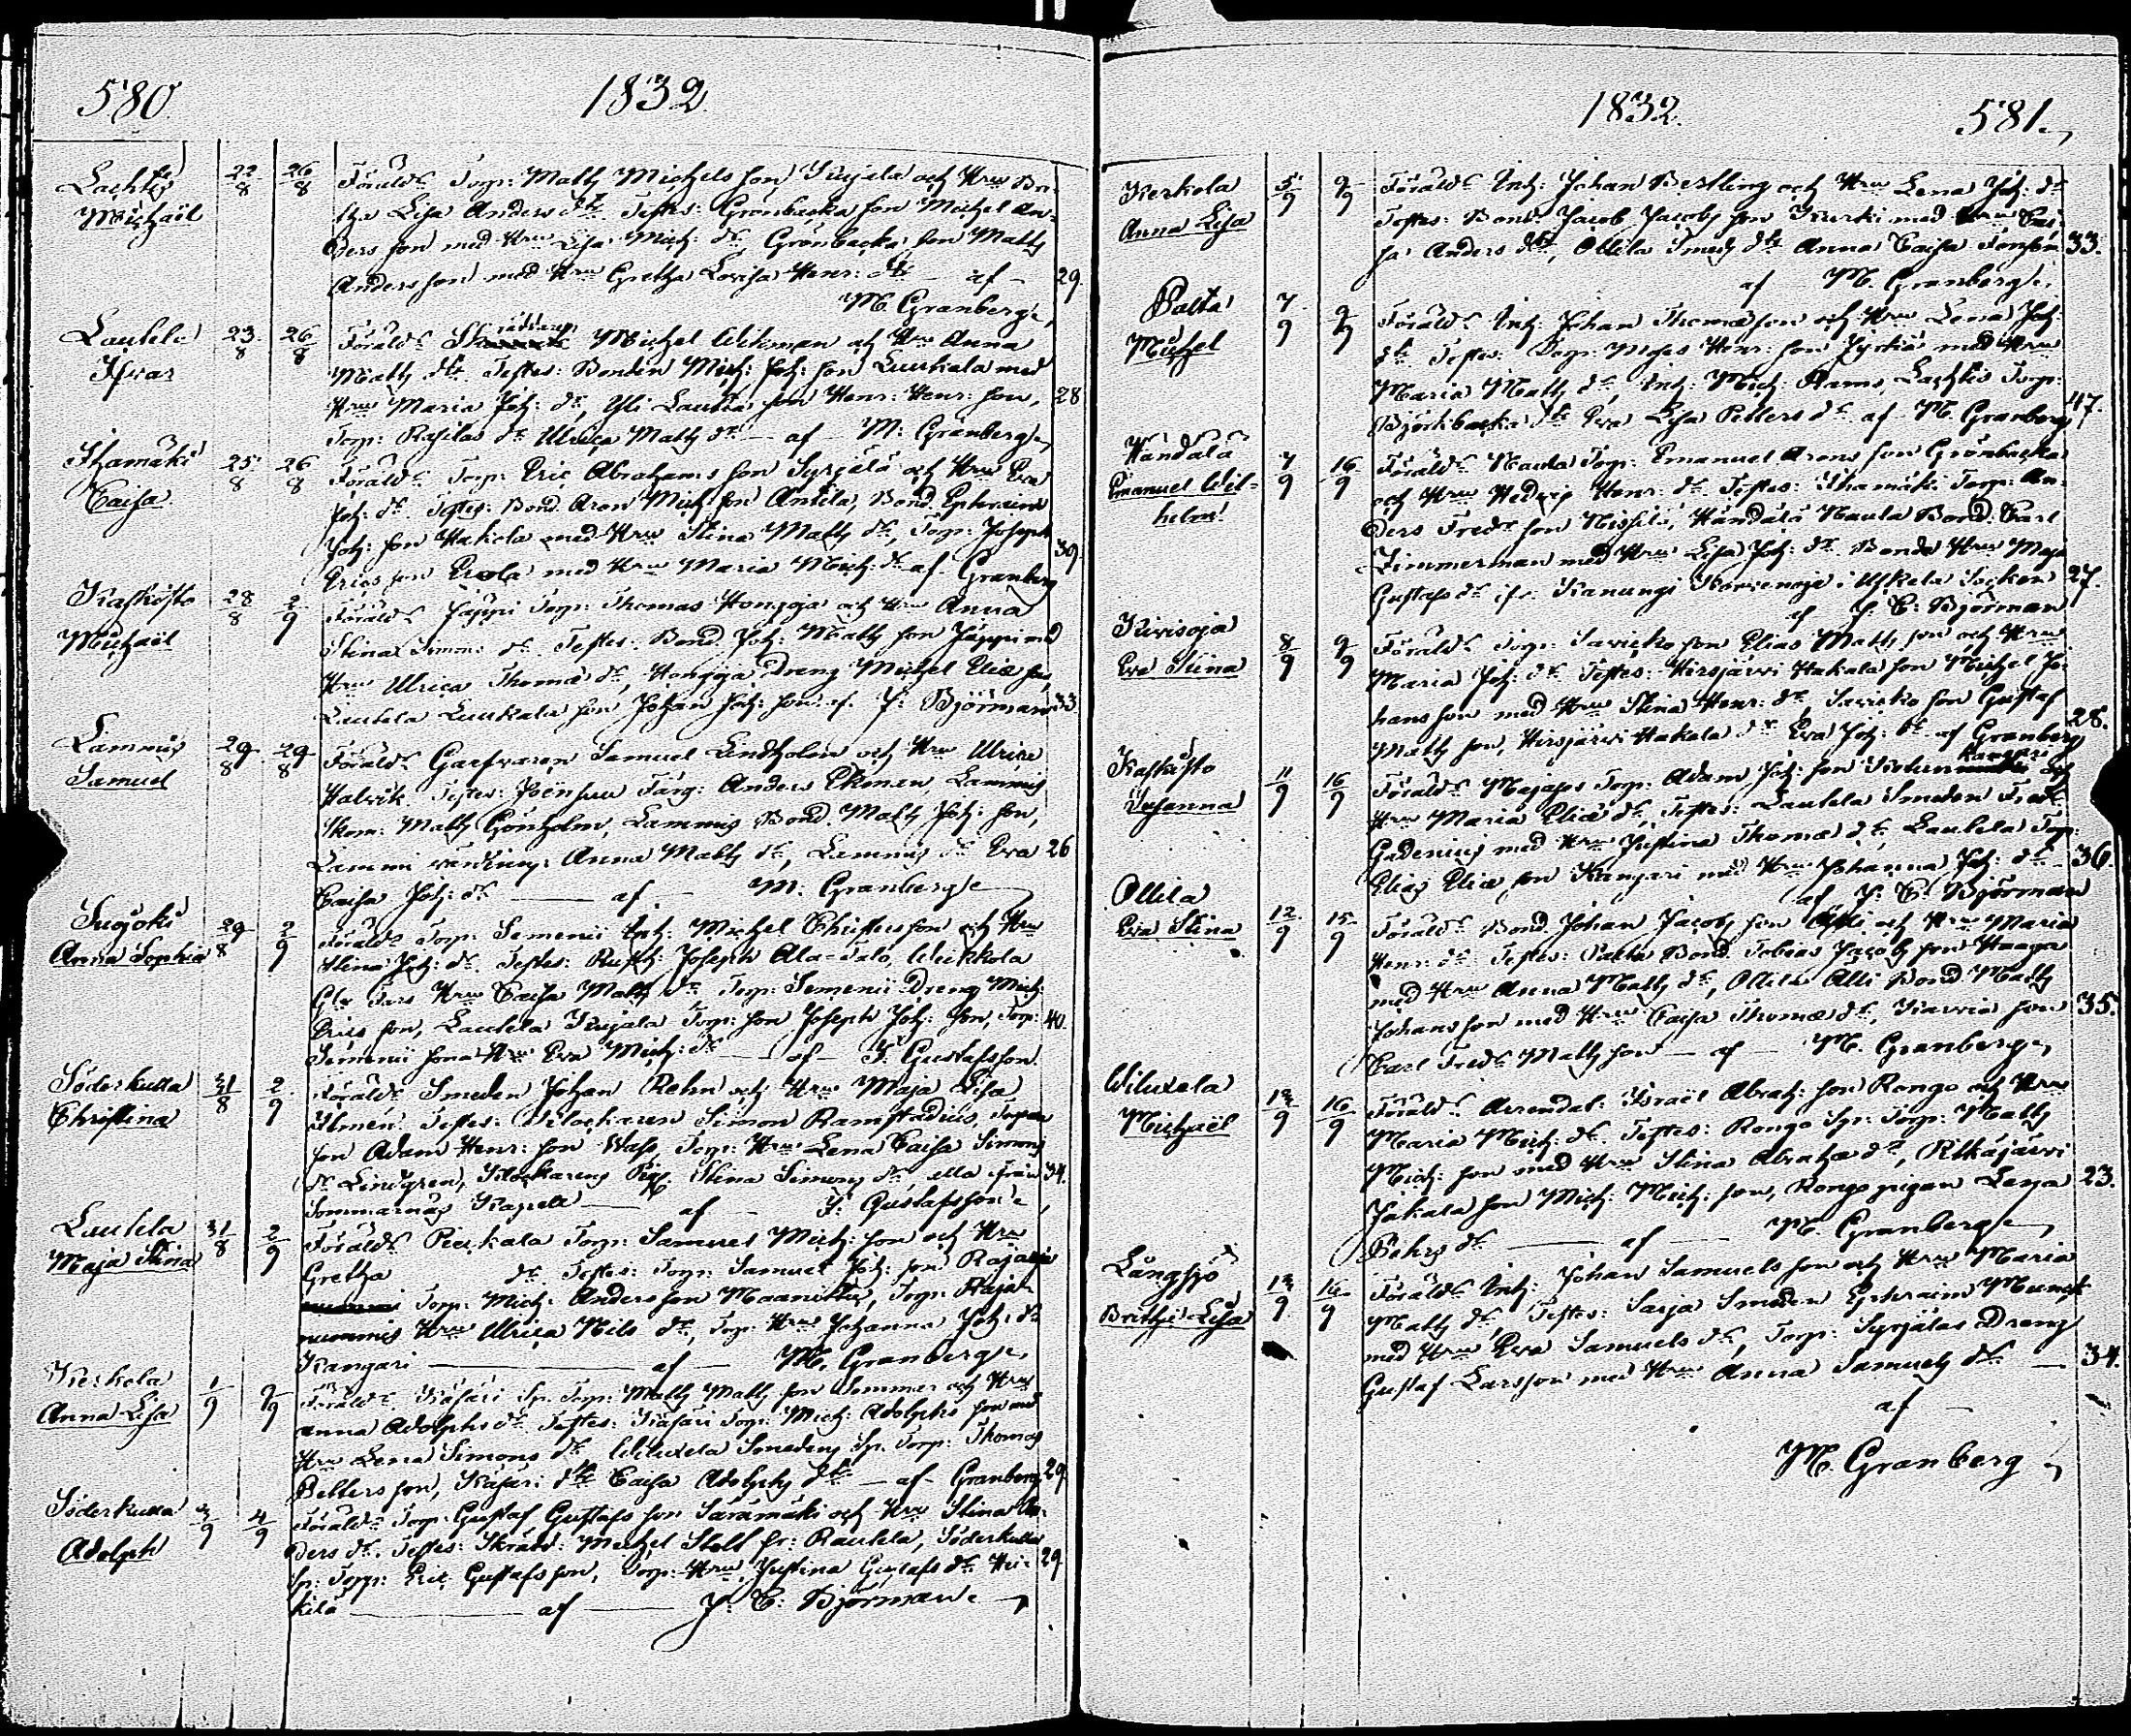 580.
1832.
Lachtis
Michaël
22/8
26/8
Föräld: Torp: Matts Michels son Kujala och Hru Bri-
tha Lisa Anders dr. Testes: Grönbacka son Michel An-
ders son med Hru Lisa Mich: dr, Grönbacka son Matts
Anders son med Hru Gretha Lovisa Henr: dr — af —
29.
M. Granberg
Lautela
Ivar
23/8
26/8
Föräld: Michel Wikman och Hru Anna
Matts dr. Testes: Bonden Mich: Joh: son Luukala med
Hru Maria Joh: dr, Yli Lautela son Henr: Henr: son,
28
Torp: Rasilas dr Ulrica Matts dr — af — M: Granberg
Ihamäki
Caisa
25/8
26/8
Föräld: Torp: Eric Abrahams son Syrjälä och Hru Eva
Joh: dr. Testes: Bond. Aron Mich: son Anttila, Bond. Ephraim
Joh: son Hakola med Hru Stina Matts dr, Torp: Joseph
39.
Erics son Erola med Hru Maria Mich: dr af Granberg
Kaskisto
Michaël
28/8
2/9
Föräld: Jäppi Torp: Thomas Hongoja och Hru Anna
Stina Simons dr. Testes: Bond. Joh: Matts son Jäppi med
Hru Ulrica Thomæ dr, Hongoja Dreng Michel Eliæ son,
Lautela Luukala son Johan Joh: son. af. J: Björman
33.
Lammis
Samuel
29/8
29/8
Föräld: Garfvaren Samuel Lindholm och Hru Ulrica
Halvik. Testes: Färg: Anders Ekman, Lammis
Skom: Matts Grönholm, Lammis Bond. Matts Joh: son,
Lammi Anna Matts dr, Lammis dr Eva
26
Caisa Joh: dr — af — M: Granberg
Sugjoki
Anna Sophia
29/8
2/9
Föräld: Torp: Semenii Inh: Michel Christers son och Hru
Stina Joh: dr. Testes: Rusth: Joseph Ala-Talo, Weikkola
Hru Caisa Matts dr Torp: Semenii Dreng Mich:
Erics son, Lautela Kujala Torp: son Joseph Joh: son, Torp:
40.
Semenii sona Hru Eva Mich: dr — af — J: Gustafsson.
Söderkulla
Christina
31/8
2/9
Föräld: Smeden Johan Rehn och Hru Maja Lisa
Ilmén. Testes: Klockaren Simon Ramstadius,
son Adam Henr: son Torp: Hru Lena Caisa Simons
dr Lindgren, Klockarens Pig. Stina Simons dr, alla ifrån
34.
Sommarnäs Kapell — af — J: Gustafsson
Lautela
Maja Stina
31/8
2/9
Föräld: Pietkala Torp: Samuel Mich: son och Hru
Gretha dr. Testes: Torp: Samuel Joh: son
Torp: Mich: Anders son Maanittu, Torp: Raja-
nummis Hru Ulrica Nils dr, Torp: Hru Johanna Joh: dr
Kangari — af — M. Granberg
Kerkola
Anna Lisa
1/9
9/9
Föräld: Käfäri Sp. Torp: Matts Matts son Sommar och Hru
Anna Adolphs dr. Testes: Käfäri Torp: Mich: Adolphs son med
Hru Lena Simons dr Wiluxela Smedens Sp. Torp: Thomas
Petters son, Käfäri dr Caisa Adolphs dr — af — Granberg
29.
Söderkulla
Adolph
3/9
4/9
Föräld: Torp: Gustaf Gustafs son Saramäki och Hru Stina An-
ders dr. Testes: Skrädd: Michel Stoll fr: Rautela, Söderkulla
Sp: Torp: Eric Gustafs son, Torp: Hru Justina Gustafs dr Hei-
29.
kilä — af — J: E: Björman
1832.
581.
Kerkola
Anna Lisa
5/9
9/9
Föräld: Inh: Johan Bestling och Hru Lena Joh: dr
Testes: Bond. Jacob Jacobs son Kurki med Hru Cai-
sa Anders dr, Ollila Smeds dr Anna Caisa
33.
af M. Granberg
Palta
Michel
7/9
9/9
Föräld: Inh: Johan Thomæ son och Hru Lena Joh:
dr. Testes: Torp: Moses Henr: son Jyrkiä med Hru
Maria Matts dr, Inh: Mich: Rams, Lachtis Torp:
47.
Björkbacka dr Eva Lisa Petters dr. af M. Granberg
Händälä
Emanuel Wil-
helm.
7/9
16/9
Föräld: Naula Torp: Emanuel Arons son Grönbacka
och Hru Hedvig Henr: dr. Testes: Ihamäki Torp: An-
ders Fredr: son Nissilä, Händälä Naula Bond. Carl
Zimmerman med Hru Lisa Joh: dr. Bonde Hru Maja
Gustafs dr ifr. Kanungi i Uskela Socken
27.
af J: E: Björman
Kivisoja
Eva Stina
8/9
9/9
Föräld: Torp: Savicko son Elias Matts son och Hru
Maria Joh: dr. Testes: Hirsjärvi Hakala son Michel Jo-
hans son med Hru Stina Henr: dr, Savicko son Gustaf
28.
Matts son, Hirsjärvi Hakala dr Eva Joh: dr af Granberg
Kaskisto
Susanna
11/9
16/9
Föräld: Majapes Torp: Adam Joh: son Kangari och
Hru Maria Eliæ dr, Testes: Lautela Smeden Fredr
Gadenius med Hru Justina Thomæ dr, Lautela Torp:
Elias Eliæ son Kangari med Hru Johanna Joh: dr —
36.
af J: E: Björman
Ollila
Eva Stina
12/9
15/9
Föräld: Bond. Johan Jacobs son Alli och Hru Maria
Henr: dr. Testes: Palta Bond. Tobias Jacobs son Haaga
med Hru Anna Matts dr, Ollila Alli Bond. Matts
Johans son med Hru Caisa Thomæ dr, son
35.
Carl Fredr: Matts son — af — M. Granberg
Wiluxela
Michaël
13/9
16/9
Föräld: Arrendat: Israël Abrah: son Rongo och Hru
Maria Mich: dr. Testes: Rongo Sp: Torp: Matts
Mich: son med Hru Stina Abrahæ dr, Pitkäjärvi
Jakala son Mich: Mich: son, Rongo pigan Lena
23.
dr — af — M. Granberg
Långsjö
Britha Lisa
13/9
16/9
Föräld: Inh: Johan Samuels son och Hru Maria
Matts dr, Testes: Sarja Smeden Ephraim Munck
med Hru Eva Samuels dr, Torp: Syrjälas Dreng
34.
Gustaf Larsson med Hru Anna Samuels dr —
af —
M. Granberg